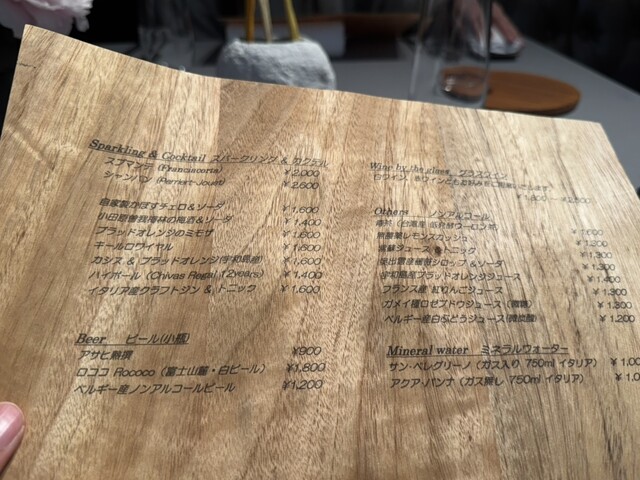 Sparkling & Cocktail スパークリング & カクテル
スプマンテ (Franciacorta) ¥2,000
シャンパン (Perrier-Jouët) ¥2,600
自家製かぼすチェロ&ソーダ ¥1,600
小田原曽我梅林の梅酒&ソーダ ¥1,400
ブラッドオレンジのミモザ ¥1,600
キールロワイヤル ¥1,600
カシス & ブラッドオレンジ(宇和島産) ¥1,600
ハイボール (Chivas Regal 12years) ¥1,400
イタリア産クラフトジン & トニック ¥1,600
Beer ビール(小瓶)
アサヒ熟撰 ¥900
ロココ Rococo (富士山麓・白ビール) ¥1,800
ベルギー産ノンアルコールビール ¥1,200
Wine by the glass グラスワイン
Others ノンアルコール
レモンスカッシュ ¥1,200
¥1,300
シロップ & ソーダ ¥1,300
宇和島産ブラッドオレンジジュース ¥1,400
フランス産 紅りんごジュース ¥1,300
ガメイ種ロゼブドウジュース (微糖) ¥1,300
ベルギー産白ぶどうジュース(微炭酸) ¥1,200
Mineral water ミネラルウォーター
サン・ペレグリーノ (ガス入り 750ml イタリア) ¥1,00
アクア・パンナ (ガス無し 750ml イタリア) ¥1,0